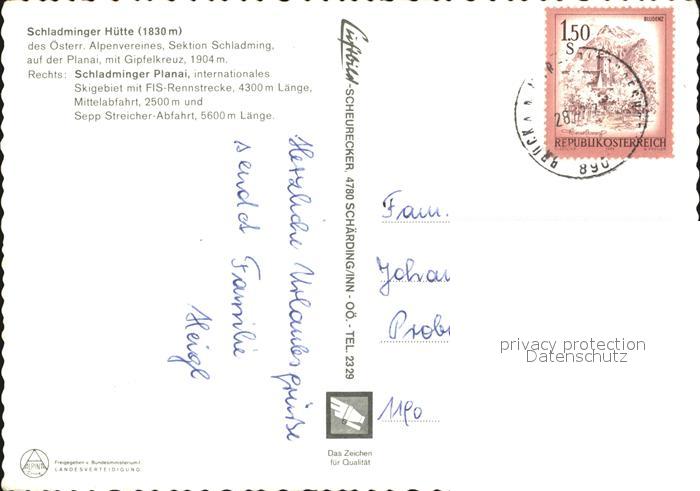 Schladminger Hütte (1830 m)
des Österr. Alpenvereines, Sektion Schladming,
auf der Planai, mit Gipfelkreuz, 1904 m.
Rechts: Schladminger Planai, internationales
Skigebiet mit FIS-Rennstrecke, 4300 m Länge,
Mittelabfahrt, 2500 m und
Sepp Streicher-Abfahrt, 5600 m Länge.
Herzliche Urlaubsgrüße
sendet Familie
Heigl
Luftbild-SCHEURECKER, 4780 SCHÄRDING/INN - OÖ. - TEL. 2329
BLUDENZ
1.50
S
REPUBLIK ÖSTERREICH
8600
Fam.
Johan
Prob
1190
privacy protection
Datenschutz
Das Zeichen
für Qualität
ALPINA
Freigegeben v. Bundesministerium f.
LANDESVERTEIDIGUNG